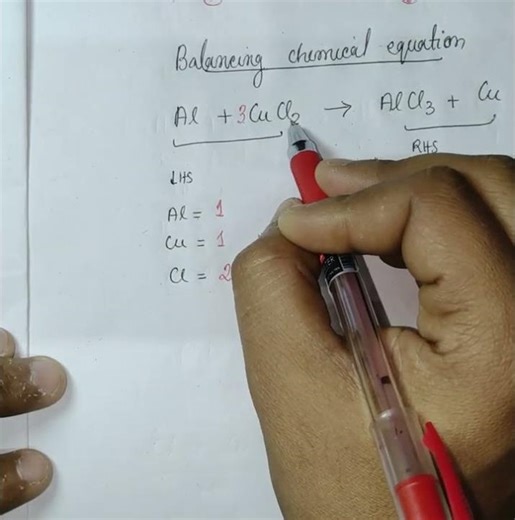 Balancing chemical equation
Al + 3CuCl₂ → AlCl₃ + Cu
RHS
LHS
Al = 1
Cu = 1
Cl = 2